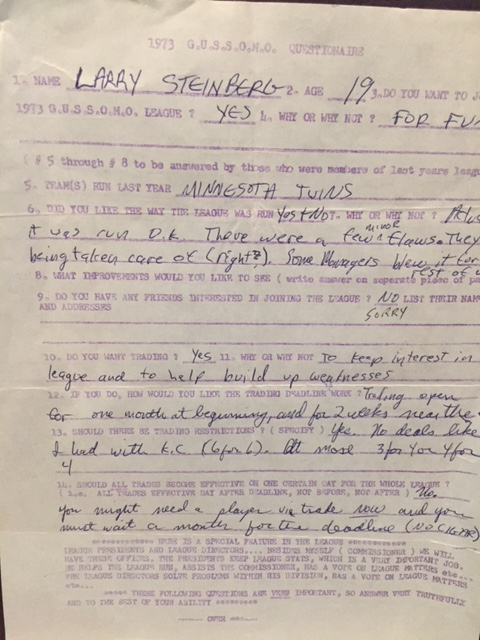 1973 G.U.S.S.O.M.O. QUESTIONAIRE
1. NAME LARRY STEINBERG 2. AGE 19 3. DO YOU WANT TO JO
1973 G.U.S.S.O.M.O. LEAGUE ? YES 4. WHY OR WHY NOT ? FOR FUN
( # 5 through # 8 to be answered by those who were members of last years leagu
5. TEAM(S) RUN LAST YEAR MINNESOTA TWINS
6. DID YOU LIKE THE WAY THE LEAGUE WAS RUN Yes + No 7. WHY OR WHY NOT ?
it was run O.K. There were a few minor flaws. They
being taken care of (right?). Some Managers blew it for
rest of u
8. WHAT IMPROVEMENTS WOULD YOU LIKE TO SEE ( write answer on seperate piece of pa
9. DO YOU HAVE ANY FRIENDS INTERESTED IN JOINING THE LEAGUE ? NO LIST THEIR NAM
AND ADDRESSES SORRY
10. DO YOU WANT TRADING ? Yes 11. WHY OR WHY NOT To keep interest in
league and to help build up weaknesses
12. IF YOU DO, HOW WOULD YOU LIKE THE TRADING DEADLINE WORK ? Trading open
for one month at beginning, and for 2 weeks near the
13. SHOULD THERE BE TRADING RESTRICTIONS ? ( SPECIFY ) Yes. No deals like
I had with K.C. (6 for 6). At most 3 for 4 or 4 for
4
14. SHOULD ALL TRADES BECOME EFFECTIVE ON ONE CERTAIN DAY FOR THE WHOLE LEAGUE ?
( i.e. ALL TRADES EFFECTIVE DAY AFTER DEADLINE, NOT BEFORE, NOT AFTER ) No.
You might need a player via trade now and you
must wait a month for the deadline
HERE IS A SPECIAL FEATURE IN THE LEAGUE
LEAGUE PRESIDENTS AND LEAGUE DIRECTORS.... BESIDES MYSELF ( COMMISSIONER ) WE WILL
HAVE THESE OFFICES. THE PRESIDENTS KEEP LEAGUE STATS, WHICH IS A VERY IMPORTANT JOB.
HE HELPS THE LEAGUE RUN, ASSISTS THE COMMISSIONER, HAS A VOTE ON LEAGUE MATTERS etc...
THE LEAGUE DIRECTORS SOLVE PROBLEMS WITHIN HIS DIVISION, HAS A VOTE ON LEAGUE MATTERS
etc...
THESE FOLLOWING QUESTIONS ARE VERY IMPORTANT, SO ANSWER VERY TRUTHFULLY
AND TO THE BEST OF YOUR ABILITY
OVER